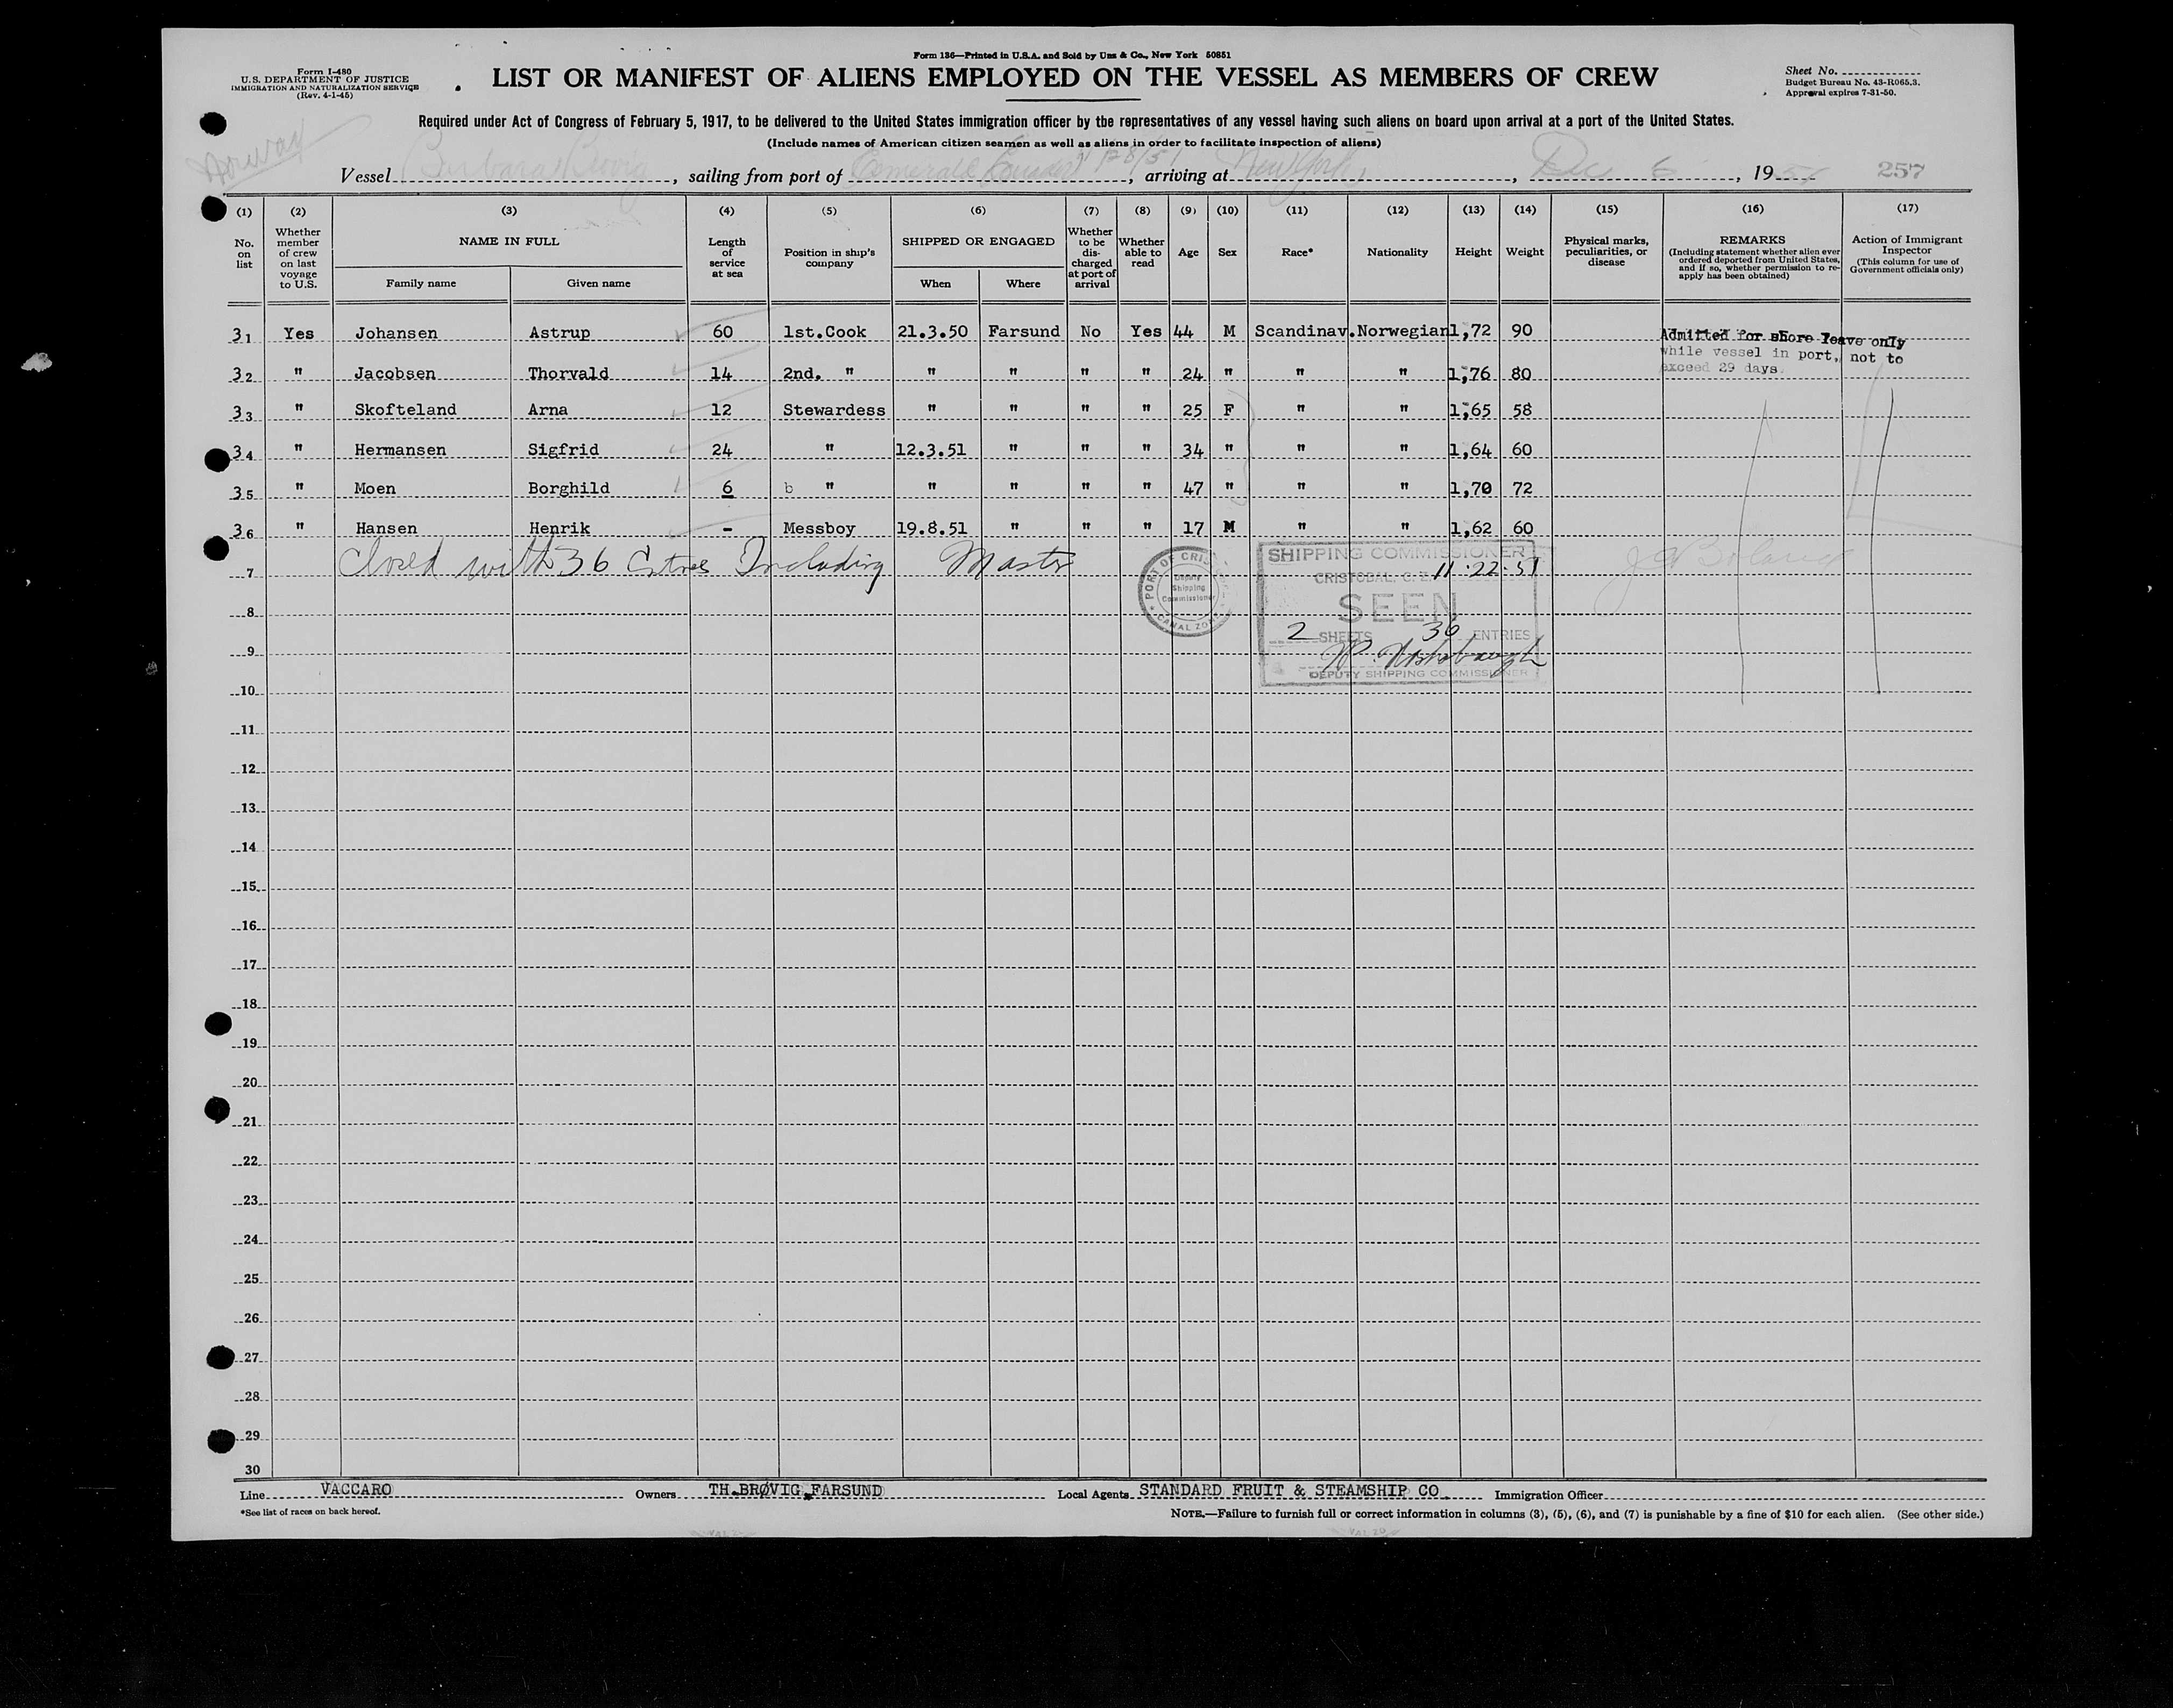 Form 136—Printed in U.S.A. and Sold by Unz & Co., New York 50851
Form I-480
U.S. DEPARTMENT OF JUSTICE
IMMIGRATION AND NATURALIZATION SERVICE
(Rev. 4-1-45)
LIST OR MANIFEST OF ALIENS EMPLOYED ON THE VESSEL AS MEMBERS OF CREW
Sheet No.
Budget Bureau No. 43-R065.3.
Approval expires 7-31-50.
Required under Act of Congress of February 5, 1917, to be delivered to the United States immigration officer by the representatives of any vessel having such aliens on board upon arrival at a port of the United States.
(Include names of American citizen seamen as well as aliens in order to facilitate inspection of aliens)
Norway
Vessel Barbara Brovig, sailing from port of Emerald 11/28/51, arriving at New York, Dec 6, 1951 257
(1) (2) (3) (4) (5) (6) (7) (8) (9) (10) (11) (12) (13) (14) (15) (16) (17)
No. on list
Whether member of crew on last voyage to U.S.
NAME IN FULL
Family name Given name
Length of service at sea
Position in ship's company
SHIPPED OR ENGAGED
When Where
Whether to be discharged at port of arrival
Whether able to read
Age
Sex
Race*
Nationality
Height
Weight
Physical marks, peculiarities, or disease
REMARKS
(Including statement whether alien ever ordered deported from United States, and if so, whether permission to reapply has been obtained)
Action of Immigrant Inspector
(This column for use of Government officials only)
31 Yes Johansen Astrup 60 1st.Cook 21.3.50 Farsund No Yes 44 M Scandinav. Norwegian 1,72 90
Admitted for shore leave only
while vessel in port, not to
exceed 29 days.
32 " Jacobsen Thorvald 14 2nd. " " " " " 24 " " " 1,76 80
33 " Skofteland Arna 12 Stewardess " " " " 25 F " " 1,65 58
34 " Hermansen Sigfrid 24 " 12.3.51 " " " 34 " " " 1,64 60
35 " Moen Borghild 6 b " " " " " 47 " " " 1,70 72
36 " Hansen Henrik - Messboy 19.8.51 " " " 17 M " " 1,62 60
Closed with 36 Entres Including Master
7
8
9
10
11
12
13
14
15
16
17
18
19
20
21
22
23
24
25
26
27
28
29
30
PORT OF CRISTOBAL
Deputy
Shipping
Commissioner
CANAL ZONE
SHIPPING COMMISSIONER
CRISTOBAL, C. Z. 11-22-51
SEEN
2 SHEETS 36 ENTRIES
DEPUTY SHIPPING COMMISSIONER
Line VACCARO Owners TH.BRØVIG,FARSUND Local Agents STANDARD FRUIT & STEAMSHIP CO. Immigration Officer
*See list of races on back hereof.
NOTE.—Failure to furnish full or correct information in columns (3), (5), (6), and (7) is punishable by a fine of $10 for each alien. (See other side.)